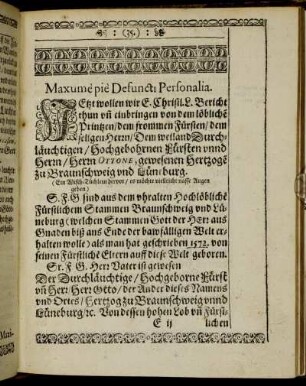 : (35.) :
Maxumè piè Defuncti Personalia.
JEtzt wollen wir E. Christl. L. Bericht
thun uñ einbringen von dem löbliche
Printzen / dem frommen Fürsten / dem
seligen Herrn / Dem weiland Durch-
läuchtigen / Hochgebohrnen Fürsten unnd
Herrn / Herrn OTTONE, gewesenen Hertzogẽ
zu Braunschweig und Lüneburg.
(Ein Wisch-Tüchlein hervor / es möchte vielleicht nasse Augen
geben)
S. F. G sind aus dem uhralten Hochlöbliche
Fürstlichem Stammen Braunschweig und Lü-
neburg (welchen Stammen Gott der Herr aus
Gnaden biß ans Ende der baufälligen Welt er-
halten wolle) als man hat geschrieben 1572. von
seinen Fürstliche Eltern auff diese Welt geboren.
Sr. F. G. Herr Vater ist gewesen
Der Durchläuchtige / Hochgeborne Fürst
uñ Herr Herr Otto / der Ander dieses Namens
und Ortes / Hertzog zu Braunschweig unnd
Lüneburg / ꝛc. Von dessen hohen Lob uñ Fürst-
E ij
lichen